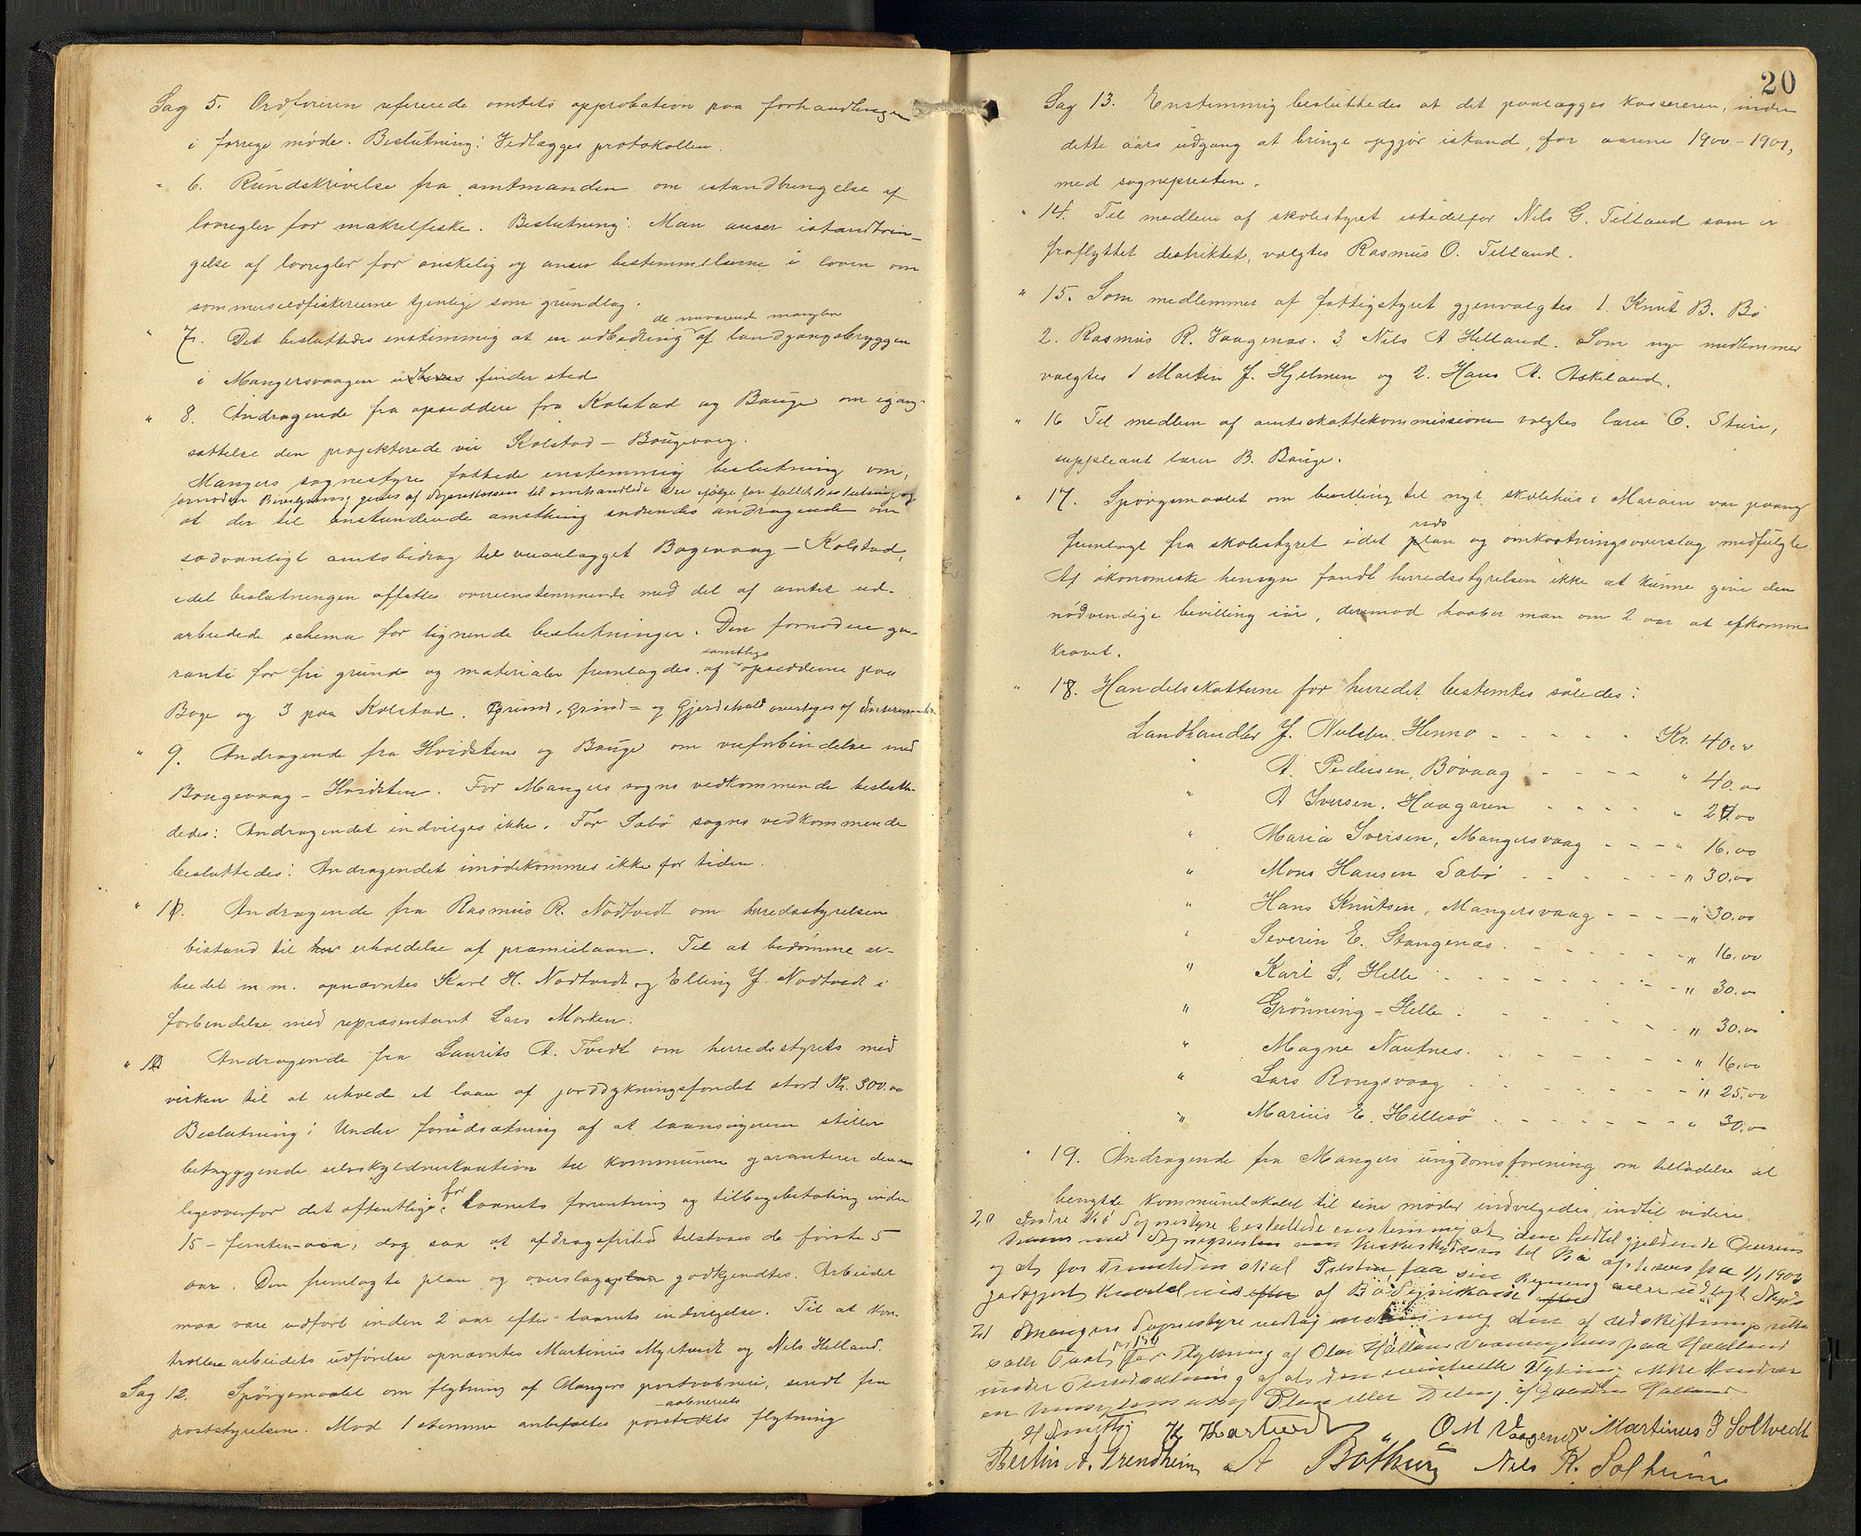 Sag 5. Ordføreren refererede amtets approbation paa forhandlingen
i forrige møde. Beslutning: Vedlægges protokollen.
" 6. Rundskrivelse fra amtmanden om istandbringelse af
lovregler for makrelfiske. Beslutning: Man anser istandbrin-
gelse af lovregler for ønskelig og anser bestemmelserne i loven om
sommersildfiskerierne tjenlige som grundlag.
de nuværende mangler
" 7. Det besluttedes enstemmig at en udbedring af landgangsbryggen
i Mangersvaagen finder sted
" 8. Andragende fra opsiddere fra Kolstad og Bauge om igang-
sættelse den projekterede vei Kolstad - Baugevaag.
Mangers sognestyre fattede enstemmig beslutning om,
at der til anstundende amtsthing indsendes andragende om
sædvanligt amtsbidrag til veianlægget Bogevaag - Kolstad,
idet beslutningen affattes overensstemmende med det af amtet ud-
arbeidede schema for lignende beslutninger. Den fornødne ga-
samtlige
ranti for fri grund og materialer fremlagdes af opsidderne paa
Boge og 3 paa Kolstad. Grund, grind- og gjerdehold overtages af
" 9. Andragende fra Hvidsten og Bauge om veiforbindelse med
Baugevaag - Hvidsten. For Mangers sogns vedkommende beslutte-
dedes: Andragendet indvilges ikke. For Sæbø sogns vedkommende
besluttedes: Andragendet imødekommes ikke for tiden.
" 10. Andragende fra Rasmus R. Nødtvedt om herredsstyrelsen
bistand til erholdelse af præmielaan. Til at bedømme ar-
beidet m.m. opnævntes Karl H. Nødtvedt og Elling J. Nødtvedt i
forbindelse med repræsentant Lars Morken.
" 11 Andragende fra Laurits A. Tvedt om herredsstyrets med
virken til at erholde et laan af jorddyrkningsfondet stort Kr. 300.00
Beslutning: Under forudsætning af at laansøgeren stiller
betryggende selvskyldnerkaution til kommunen garanterer denne
for
ligeoverfor det offentlige laanets forrentning og tilbagebetaling inden
15 - femten - aar, dog saa at afdragsfrihed tilstaaes de første 5
aar. Den fremlagte plan og overslag godkjendtes. Arbeidet
maa være udført inden 2 aar efter laanets indvilgelse. Til at kon-
trollere arbeidets udførelse opnævntes Martinus Myrtvedt og Nils Helland.
Sag 12. Spørgsmaalet om flytning af Mangers postaabneri, sendt fra
aabneriets
poststyrelsen. Mod 1 stemme anbefaltes flytning
20
Sag 13. Enstemmig besluttedes at det paalægges kassereren, inden
dette aars udgang at bringe opgjør istand, for aarene 1900 - 1901,
med sognepresten.
" 14. Til medlem af skolestyret istedetfor Nils G. Tilland som er
fraflyttet destriktet, valgtes Rasmus O. Tilland.
" 15. Som medlemmer af fattigstyret gjenvalgtes 1. Knut B. Bø
2. Rasmus R. Vaagenæs. 3 Nils A Helland. Som nye medlemmer
valgtes 1 Martin J. Hjelmen og 2. Hans A. Askeland.
" 16 Til medlem af amtsskattekommissionen valgtes lærer C. Sture,
suppleant lærer B. Bauge.
" 17. Spørgsmaalet om bevilling til nyt skolehus i Marøen var paany
fremlagt fra skolestyret idet plan og omkostningsoverslag medfulgte
Af økonomiske hensyn fandt herredsstyrelsen ikke at kunne give den
nødvendige bevilling iaar, derimod haaber man om 2 aar at efkomme
kravet.
" 18. Handelsskatterne for herredet bestemtes saaledes:
Landhandler J. Nielsen, Herno - - - - - Kr. 40.00
" A. Pedersen, Bøvaag - - - - " 40.00
" A Iversen, Haagaren - - - - " 20.00
" Maria Iversen, Mangersvaag - - - " 16.00
" Mons Hansen Sæbø - - - - - " 30.00
" Hans Knutsen, Mangersvaag - - - " 30.00
" Severin E. Stangenæs - - - - - " 16.00
" Karl S. Helle - - - - - - " 30.00
" Grønning - Helle - - - - - " 30.00
" Magne Nautnes - - - - - - " 16.00
" Lars Rongsvaag - - - - - - " 25.00
" Marius E. Hellesø - - - - - - " 30.00
" 19. Andragende fra Mangers ungdomsforening om tilladelse at
benytte kommunelokalet til sine møder indvilgedes indtil videre
20 Sognestyre besluttede enstemmig at den hidtil gjeldende
til Bø fra 1/1 1902
og at for Fremtiden skal Presten faa sin
godtgjort af Bø Sognekasse
21 Mangers Sognestyre vedtog enstemmig
Flytning af Olai Hallands Vaaningshus paa Hælland
under Forudsætning af at den eventuelle Flytning ikke
H Hartvedt O M Vaagenes Martinus J Toltvedt
Bertin A. Trendheim A Bøthun Nils K. Solheim